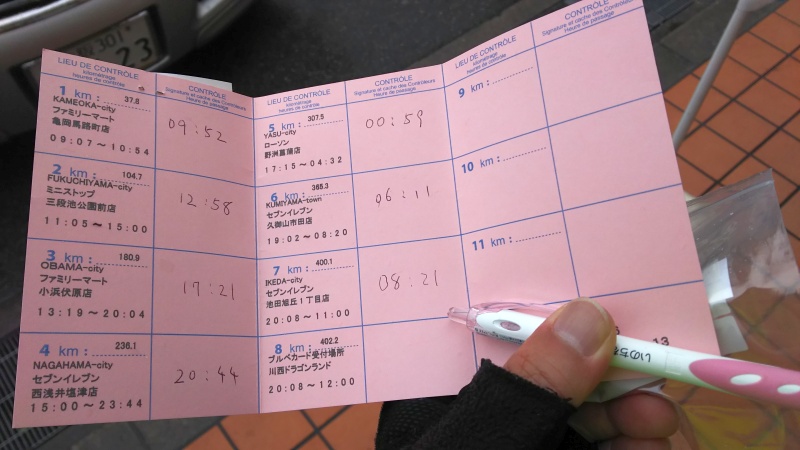 LIEU DE CONTRÔLE
kilométrage
heures de contrôle
CONTRÔLE
Signature et cachet des Contrôleurs
Heure de passage
1 km: 37.6
KAMEOKA-city
ファミリーマート
亀岡馬路町店
09:07～10:54
09:52
2 km: 104.7
FUKUCHIYAMA-city
ミニストップ
三段池公園前店
11:05～15:00
12:58
3 km: 180.9
OBAMA-city
ファミリーマート
小浜伏原店
13:19～20:04
17:21
4 km: 236.1
NAGAHAMA-city
セブンイレブン
西浅井塩津店
15:00～23:44
20:44
LIEU DE CONTRÔLE
kilométrage
heures de contrôle
CONTRÔLE
Signature et cachet des Contrôleurs
Heure de passage
5 km: 307.5
YASU-city
ローソン
野洲菖蒲店
17:15～04:32
00:59
6 km: 365.3
KUMIYAMA-town
セブンイレブン
久御山市田店
19:02～08:20
06:11
7 km: 400.1
IKEDA-city
セブンイレブン
池田旭丘1丁目店
20:08～11:00
08:21
8 km: 402.2
ブルベカード受付場所
川西ドラゴンランド
20:08～12:00
LIEU DE CONTRÔLE
kilométrage
heures de contrôle
CONTRÔLE
Signature et cachet des Contrôleurs
Heure de passage
9 km:
10 km:
11 km:
13
301
23